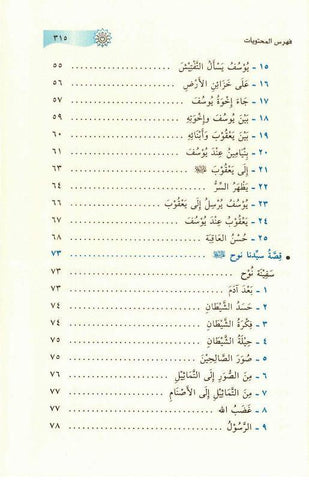 فهرس المحتويات ٣١٥
١٥ - يُوْسُفُ يَسْأَلُ التَّفْتِيْشَ .................... ٥٥
١٦ - عَلَى خَزَائِنِ الأَرْضِ .................... ٥٦
١٧ - جَاءَ إِخْوَةُ يُوسُفَ .................... ٥٧
١٨ - بَيْنَ يُوسُفَ وَإِخْوَتِهِ .................... ٥٩
١٩ - بَيْنَ يَعْقُوْبَ وَأَبْنَائِهِ .................... ٦٠
٢٠ - بِنْيَامِينُ عِنْدَ يُوسُفَ .................... ٦١
٢١ - إِلَى يَعْقُوْبَ ﷺ .................... ٦٣
٢٢ - يَظْهَرُ السِّرُّ .................... ٦٤
٢٣ - يُوْسُفُ يُرْسِلُ إِلَى يَعْقُوْبَ .................... ٦٦
٢٤ - يَعْقُوْبُ عِنْدَ يُوْسُفَ .................... ٦٧
٢٥ - حُسْنُ العَاقِبَة .................... ٦٨
• قِصَّةُ سيِّدنا نوح .................... ٧٣
سَفِيْنَة نُوْح .................... ٧٣
١ - بَعْدَ آدَمَ .................... ٧٣
٢ - حَسَدُ الشَّيْطَانِ .................... ٧٤
٣ - فِكْرَةُ الشَّيْطَانِ .................... ٧٤
٤ - حِيْلَةُ الشَّيْطَانِ .................... ٧٥
٥ - صُوَرُ الصَّالِحِيْنَ .................... ٧٥
٦ - مِنَ الصُّوَرِ إِلَى التَّمَاثِيْلِ .................... ٧٦
٧ - مِنَ التَّمَاثِيْلِ إِلَى الأَصْنَامِ .................... ٧٧
٨ - غَضَبُ الله .................... ٧٧
٩ - الرَّسُوْلُ .................... ٧٨